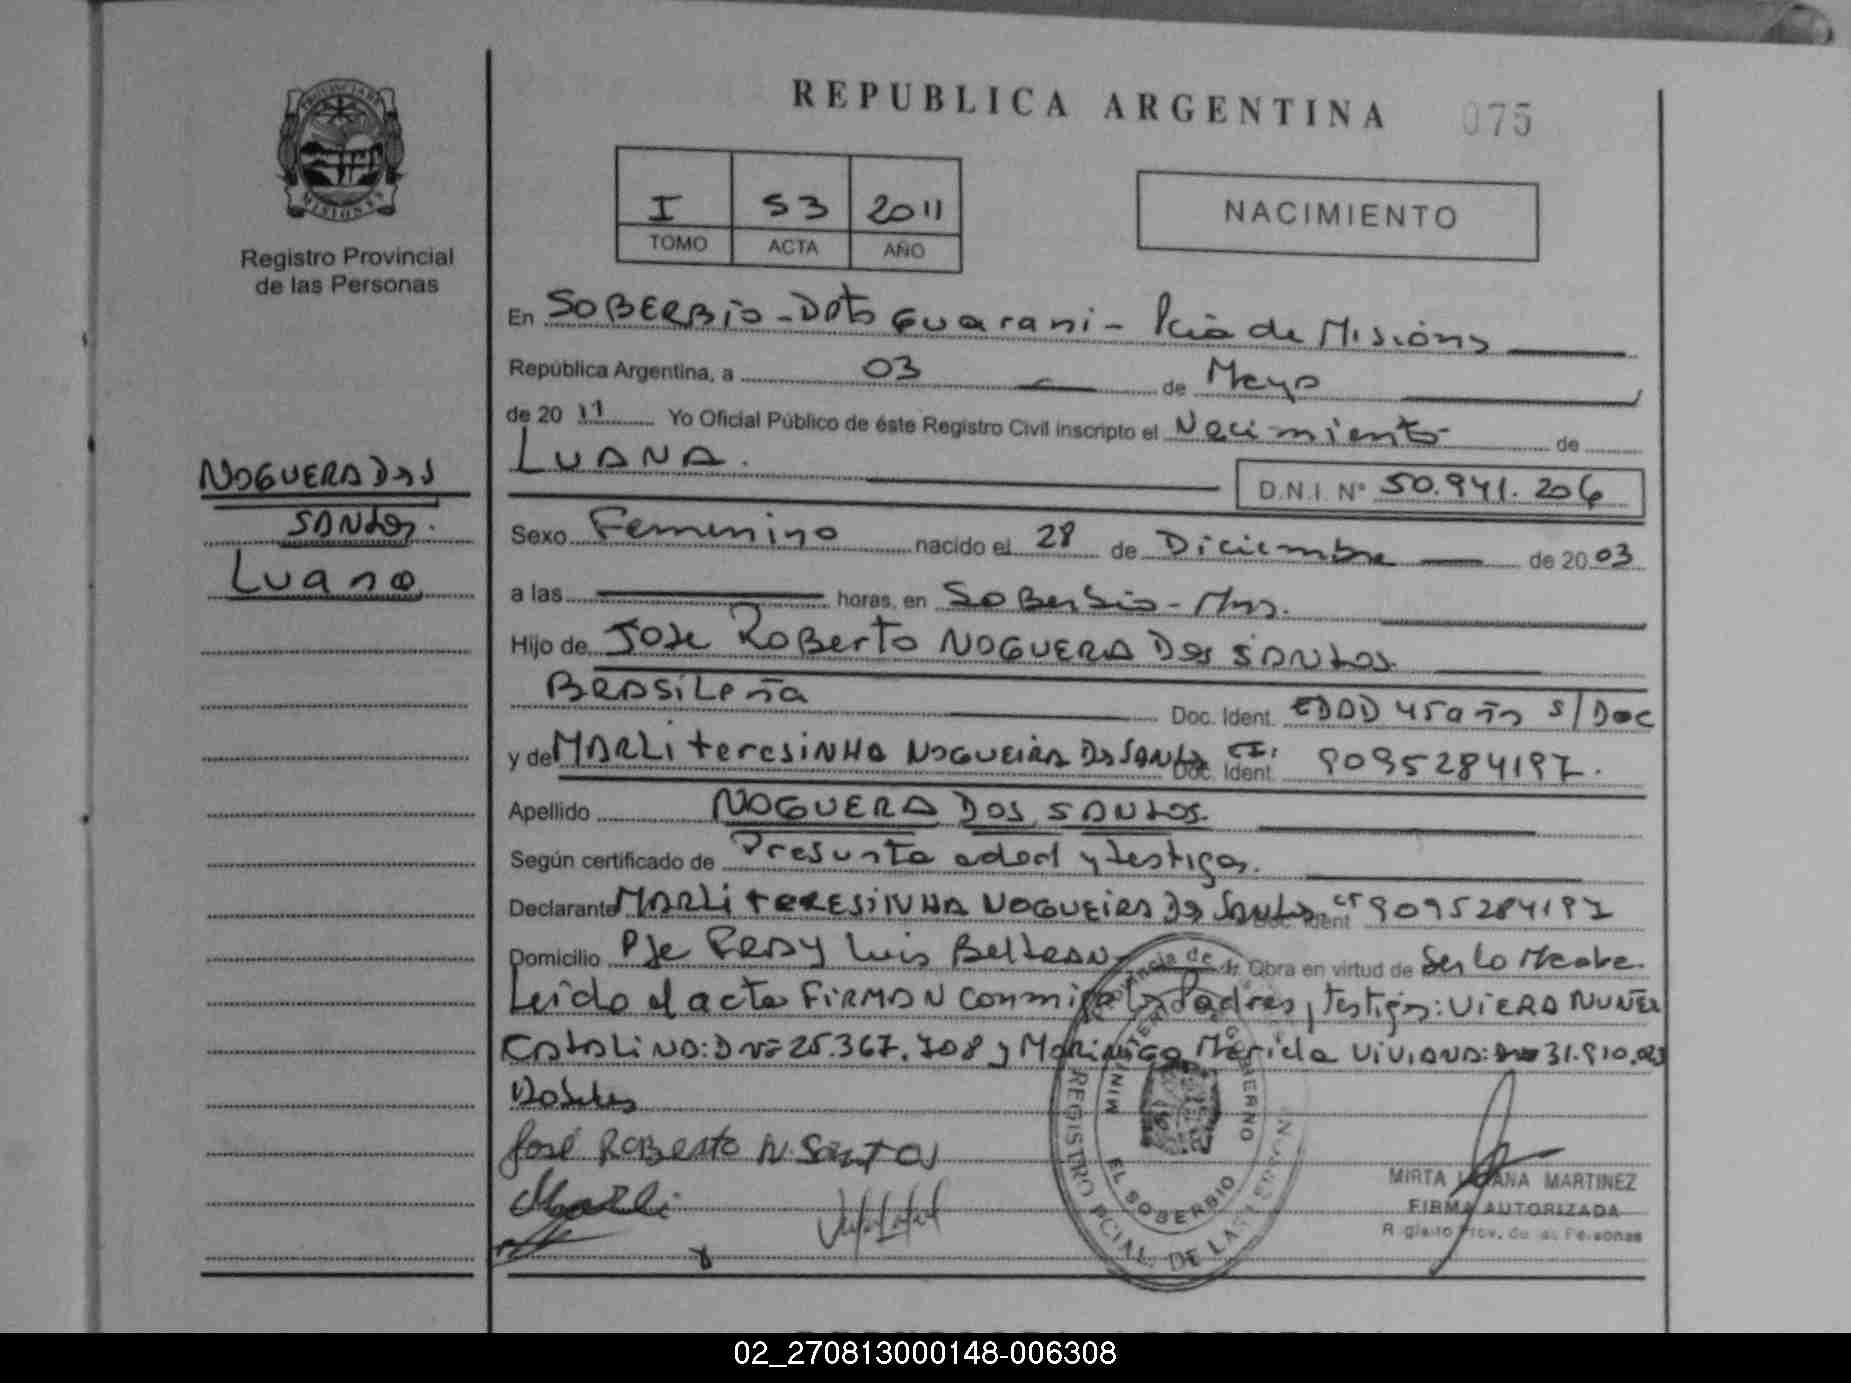 REPUBLICA ARGENTINA 075
PROVINCIA DE
MISIONES
Registro Provincial
de las Personas
I 53 2011
TOMO ACTA AÑO
NACIMIENTO
En SOBERBIO - Dpto Guarani - Pcia de Misions
República Argentina, a 03 de Mayo
de 20 11 Yo Oficial Público de éste Registro Civil inscripto el Nacimiento de
LUANA.
D.N.I. Nº 50.941.206
NOGUERA DOS
SANtos.
Luana
Sexo Femenino nacido el 28 de Diciembre de 20 03
a las horas, en SoBerbio - Mns.
Hijo de Jose RoBerto NOGUERA Dos SANtos
BRASILeña Doc. Ident. EDAD 45 años S/Doc
y de MARLi teresiNHA NOGUEiRA Ds SANtos Doc. Ident. CI: 9095284197.
Apellido NOGUERA DOS SANtOS.
Según certificado de Presunta edad y testigos.
Declarante MARLi tERESiNHA NOGUEiRA Ds SANtos Doc. Ident CI 9095284197
Domicilio Pje FRAY Luis BeltRAN Obra en virtud de Ser la Madre.
Leido el acta FiRMAN conmigo Ls Padres, testigos: ViERA NUÑEz
CAtALiNO: DNI 25.367.708 y Mariela ViViANA: 31.910.023
José RoBerto N. Santos
Marli
REGISTRO PCIAL. DE LAS PERSONAS
EL SOBERBIO
MIRTA LILIANA MARTINEZ
FIRMA AUTORIZADA
Registro Prov. de las Personas
02_270813000148-006308